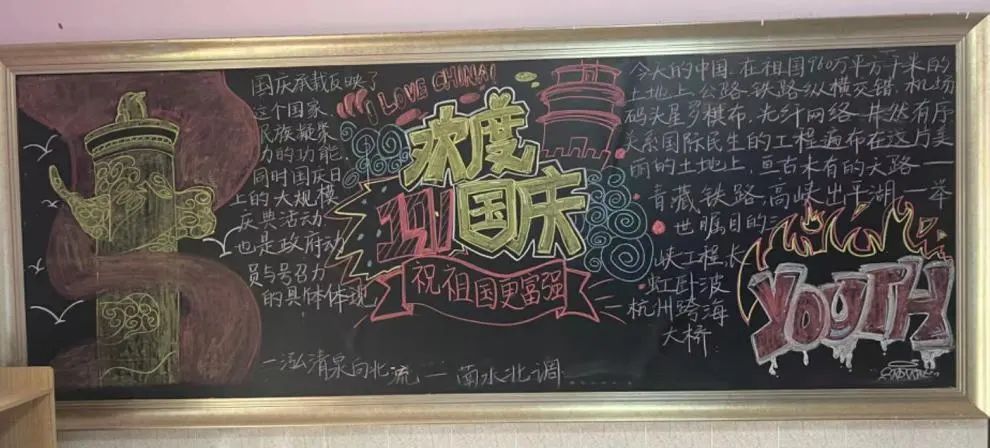 国庆承载反映了
这个国家、
民族凝聚
力的功能,
同时国庆日
上的大规模
庆典活动
也是政府动
员与号召力
的具体体现
I LOVE CHINA!
欢度
国庆
祝祖国更富强
一泓清泉向北流一南水北调……
今天的中国.在祖国960万平方千米的
土地上.公路铁路纵横交错.机场
码头星罗棋布.光纤网络井然有序
关系国际民生的工程遍布在这片美
丽的土地上.亘古未有的天路——
青藏铁路,高峡出平湖,一举
世瞩目的三
峡工程,长
虹卧波
杭州跨海
大桥.
YOUTH